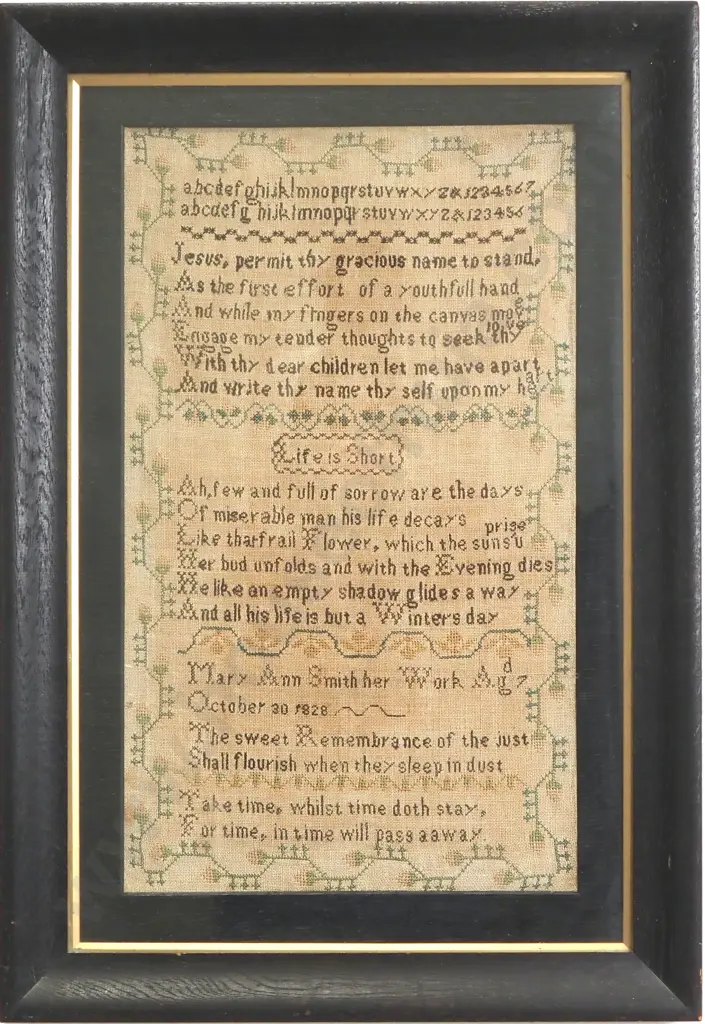 abcdefghijklmnopqrstuvwxyz&1234567
abcdefghijklmnopqrstuvwxyz&123456
Jesus, permit thy gracious name to stand,
As the first effort of a youthfull hand
And while my fingers on the canvas move
Engage my tender thoughts to seek thy love
With thy dear children let me have apart
And write thy name thy self upon my hart
Life is Short
Ah, few and full of sorrow are the days
Of miserable man his life decays
Like that frail Flower, which the suns uprise
Her bud unfolds and with the Evening dies
He like an empty shadow glides a way
And all his life is but a Winters day
Mary Ann Smith her Work Agd 7
October 30 1828
The sweet Remembrance of the just
Shall flourish when they sleep in dust
Take time, whilst time doth stay,
For time, in time will pass aaway